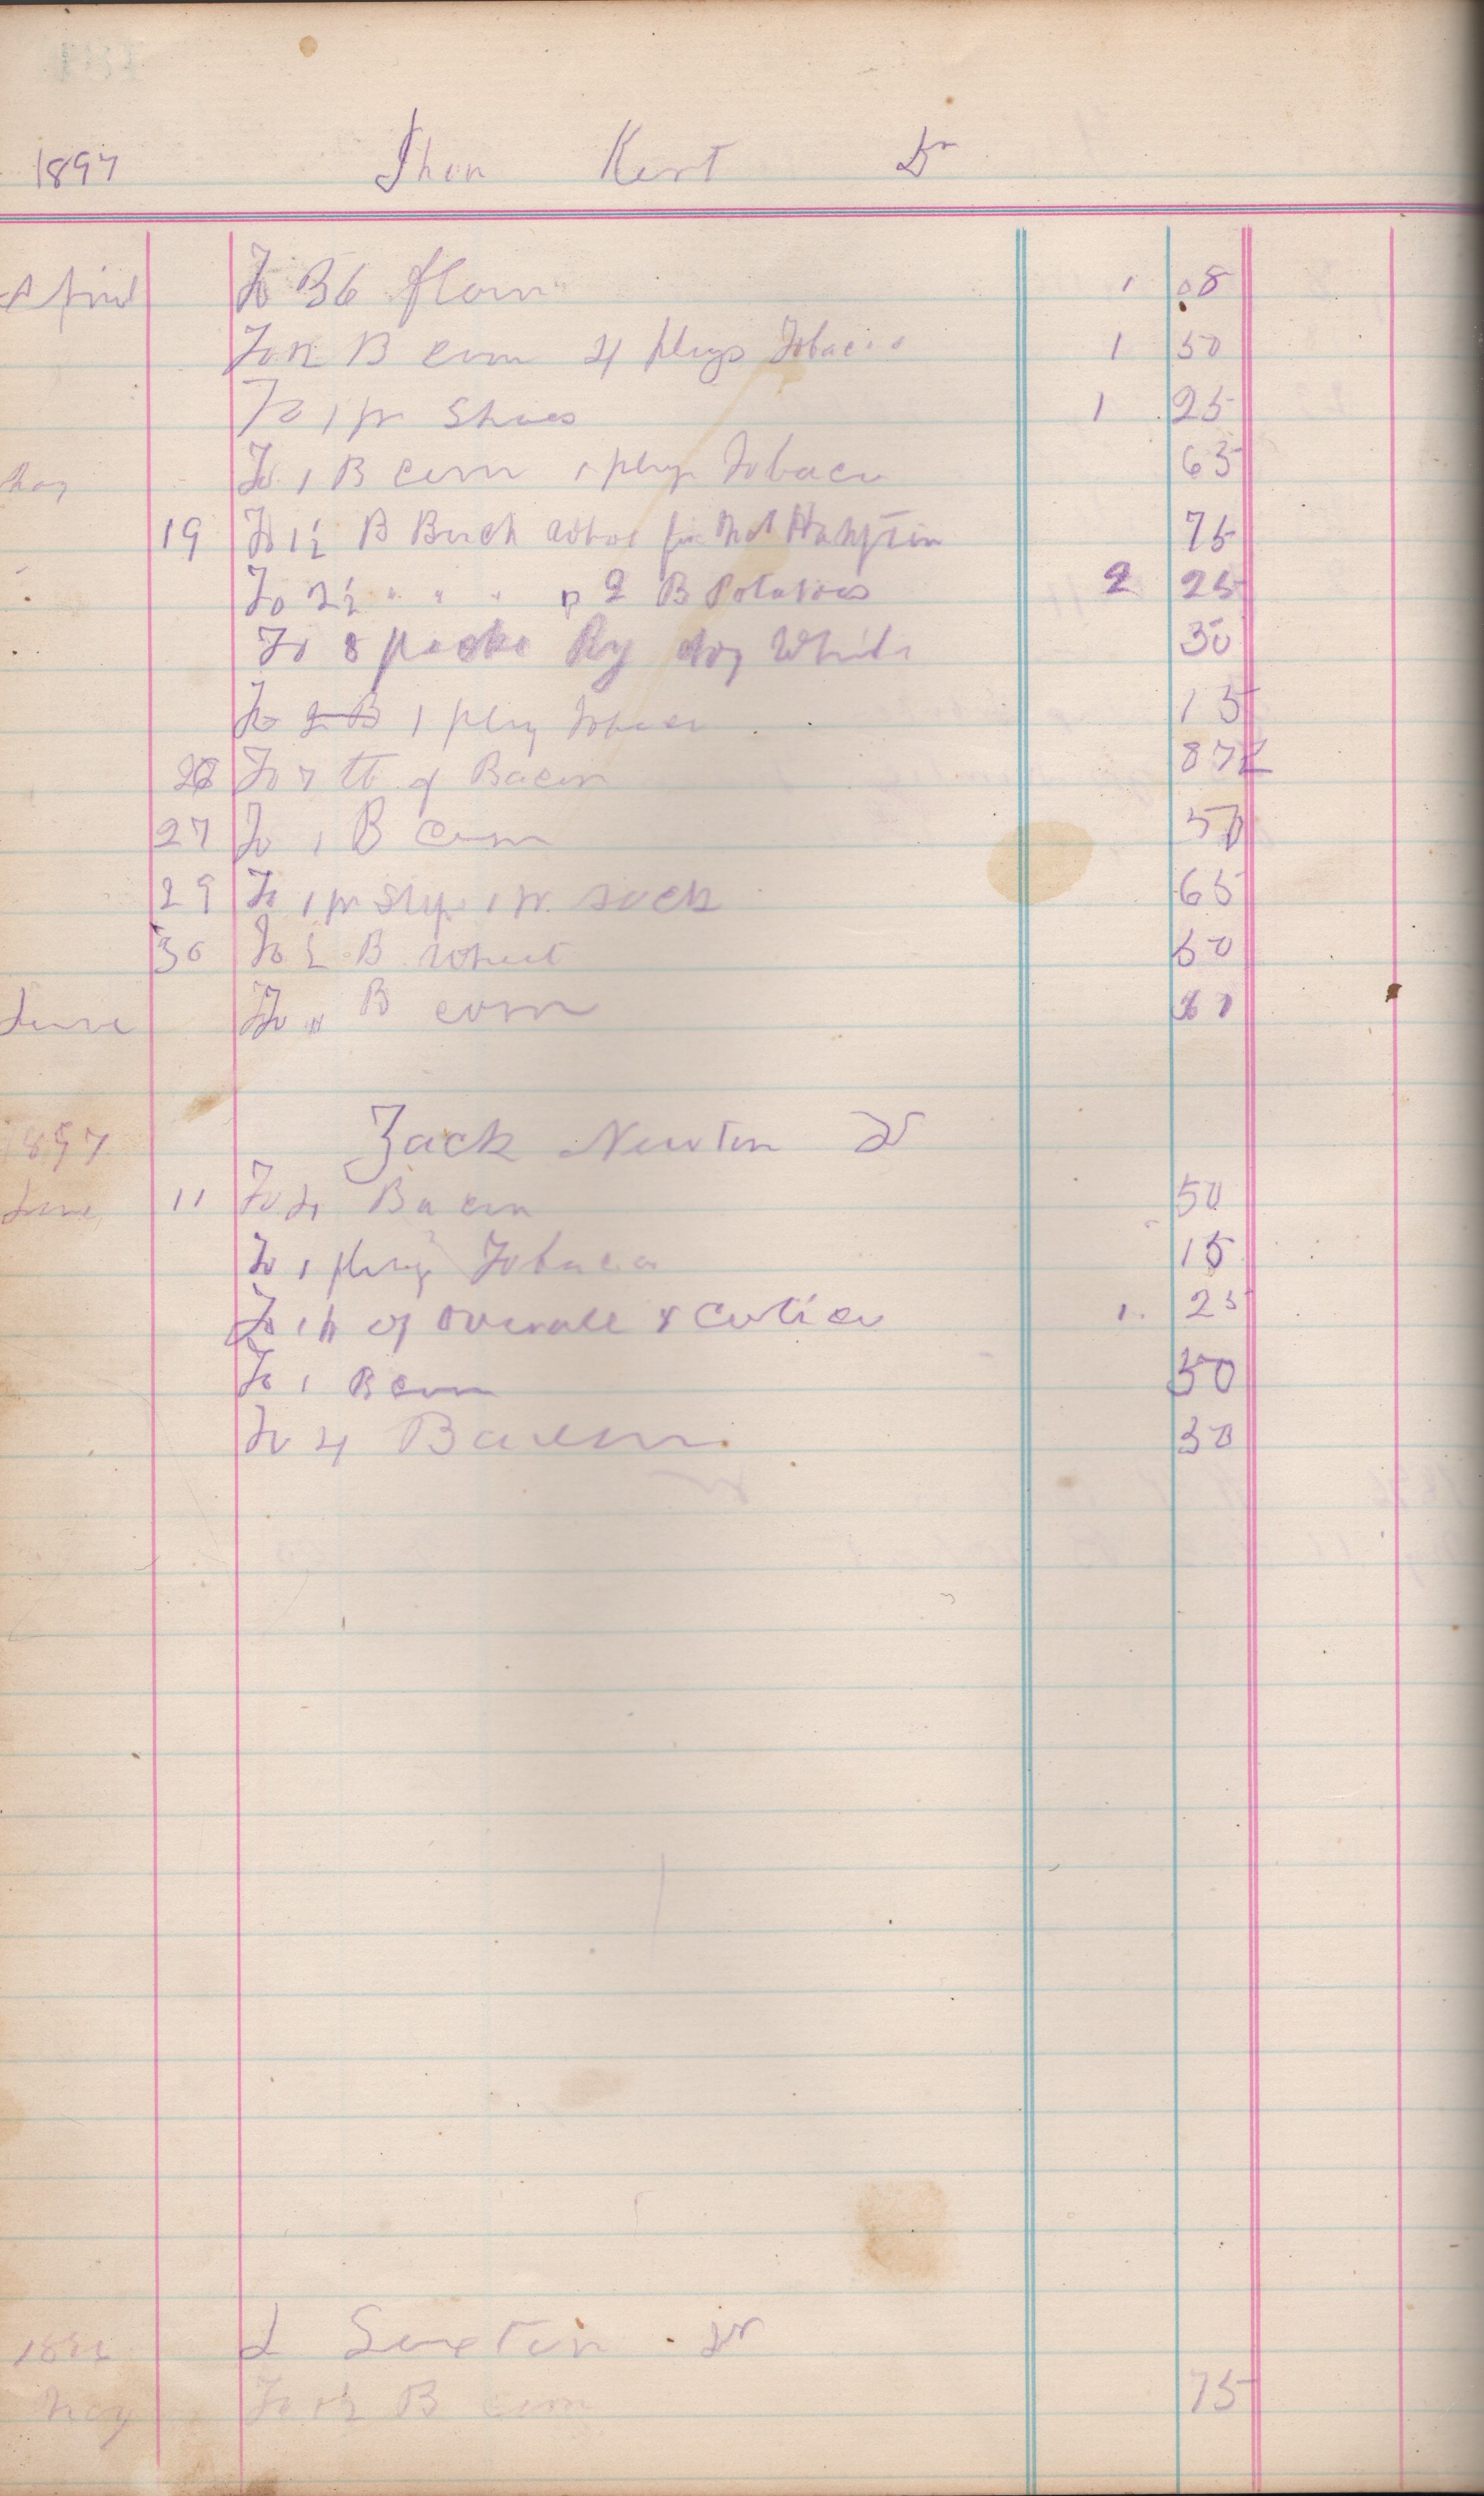 1897 Jhon Kert Dr
April To B6 flour 1 08
To B corn 4 plugs Tobacco 1 50
To 1 pr Shoes 1 25
May To 1 B corn 1 plug Tobaco 65
19 To 1½ B Buck for Hampton 75
To 2½ " " " 2 B Potatoes 2 25
To 8 Ry 30
To 2 B 1 plug 15
28 To 7 lb of Bacon 87½
27 To 1 B corn 50
29 To 1 pr 1 pr sock 65
30 To ½ B wheet 50
June To " B corn
1897 Zack Newton Dr
June 11 To 4 Bacon 50
To 1 plug Tobacco 15
To 1 of overalls & 1. 25
To 1 B corn 50
To 4 Bacon 30
L Sexton Dr
May To B corn 75